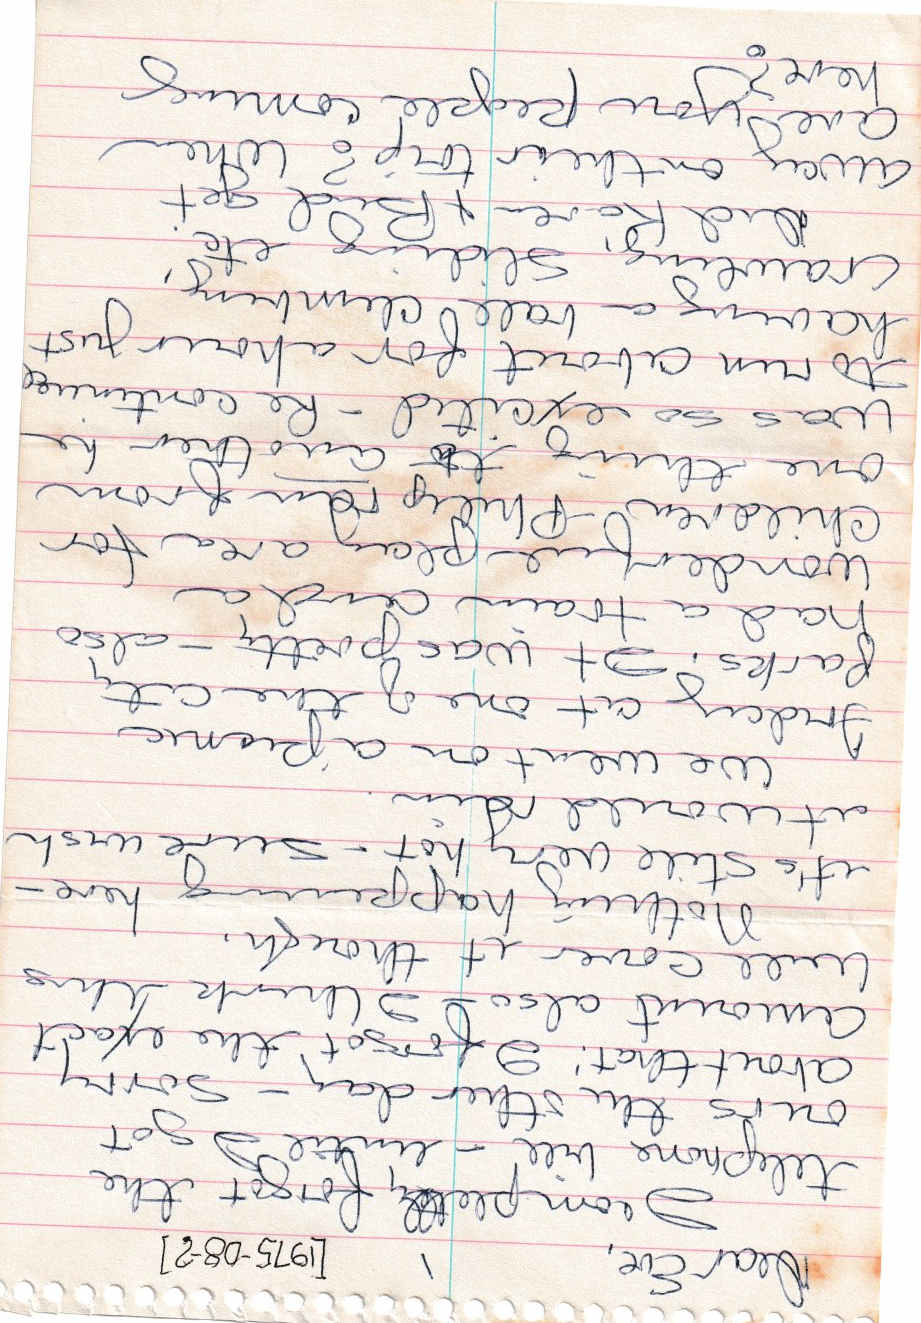 [1975-08-2]
Dear Eve,
I completely forgot the
telephone bill - until I got
ours the other day - Sorry
about that. I forgot the exact
amount also - I think this
will cover it though.
Nothing happening here -
it's still very hot - sure wish
it would rain.
We went on a picnic
Friday at one of the city
parks. It was pretty - also
had a train and a
wonderful play area for
children - Philip ran from
one thing to another he
was so excited - he continued
to run about for a hour just
having a ball climbing,
crawling, sliding etc.
Did Karen & Bud get
away on their trip? When
are you people coming
here?